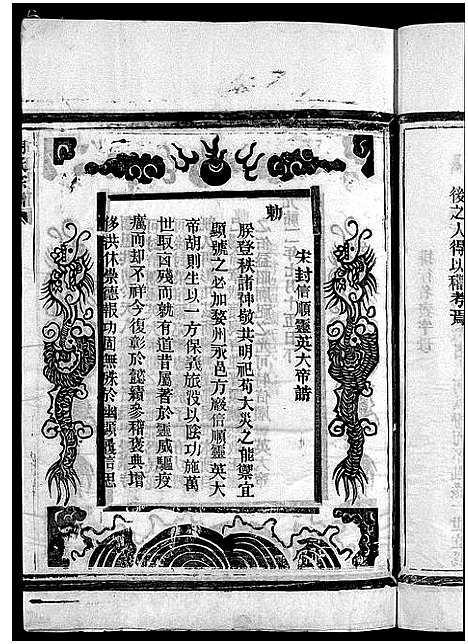 後之人得以稽考焉
宋封信順靈英大帝誥
勅
朕登秩諸神敬共明祀苟大災之能禦宜
顯號之必加婺州永邑方巖信順靈英大
帝胡則生以一方保義旅没以陰功施萬
世取凶殘而就有道昔屬著於靈威驅疫
癘而却不祥今復彰於懿績參稽褒典增
侈洪休崇德報功固無殊於幽顯